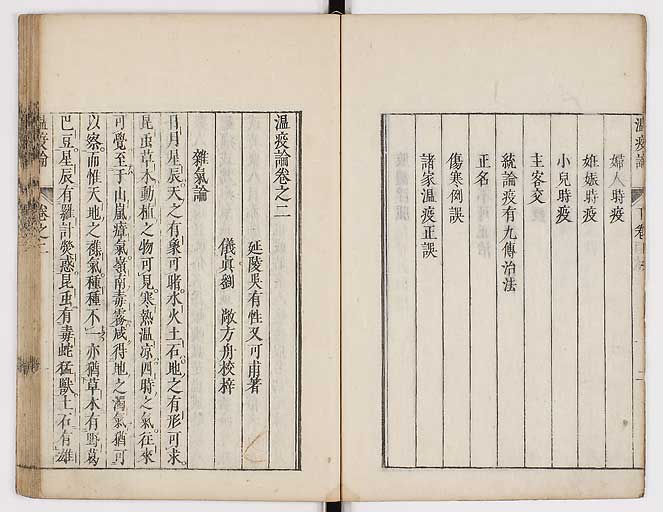 婦人時疫
妊娠時疫
小兒時疫
主客交
統論疫有九傳治法
正名
傷寒例誤
諸家温疫正誤
温疫論卷之二
延陵吳有性又可甫著
儀眞劉 敞方舟校梓
雜氣論
日月星辰天之有象可睹水火土石地之有形可求
昆虫草木動植之物可見寒熱温凉四時之氣往來
可覺至于山嵐瘴氣嶺南毒霧咸得地之濁氣猶可
以察而惟天地之雜氣種種不一亦猶草木有野葛
巴豆星辰有羅計熒惑昆虫有毒蛇猛獸土石有雄